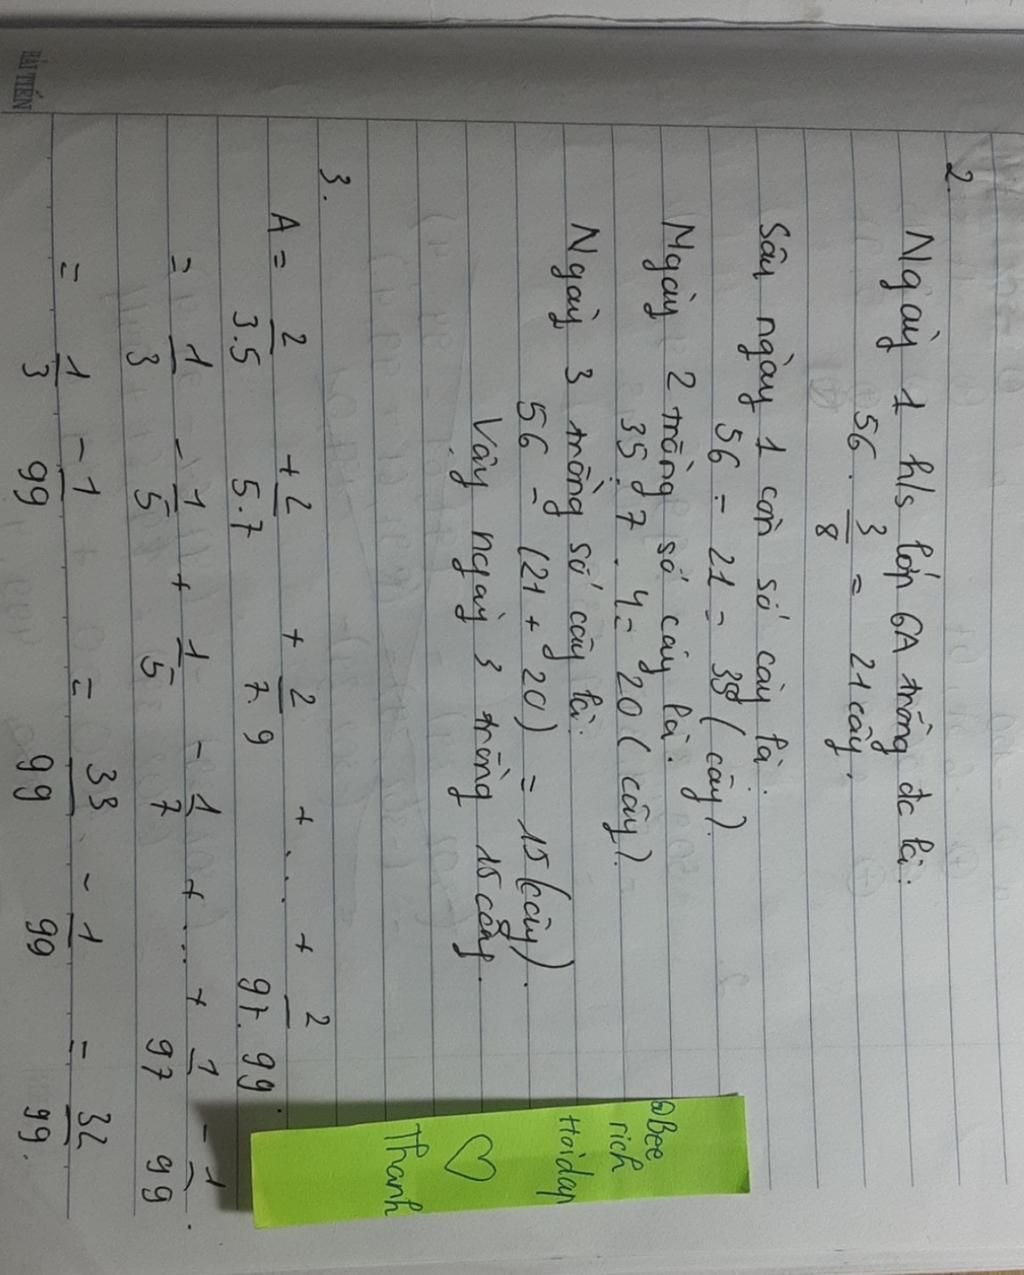 2.
Ngày 1 h/s lớp 6A trồng đc là:
56 . 3/8 = 21 cây.
Sau ngày 1 còn số cây là.
56 - 21 = 35 (cây).
Ngày 2 trồng số cây là:
35 : 7 . 4 = 20 (cây).
Ngày 3 trồng số cây là:
56 - (21 + 20) = 15 (cây).
Vậy ngày 3 trồng 15 cây.
3.
A = 2/3.5 + 2/5.7 + 2/7.9 + ... + 2/97.99.
= 1/3 - 1/5 + 1/5 - 1/7 + ... + 1/97 - 1/99.
= 1/3 - 1/99 = 33/99 - 1/99 = 32/99.
@Bee
rich
Hoidap
♡
Thanh
HẢI TIẾN